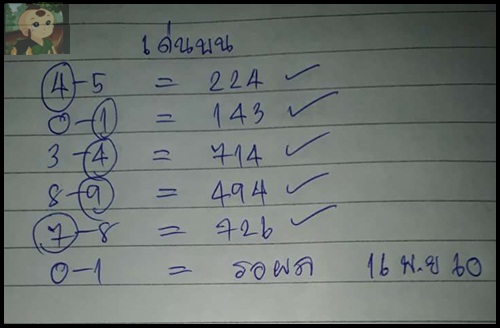 เด่นบน
4-5 = 224 ✓
0-1 = 143 ✓
3-4 = 714 ✓
8-9 = 494 ✓
7-8 = 726 ✓
0-1 = รอผล 16 พ.ย 60